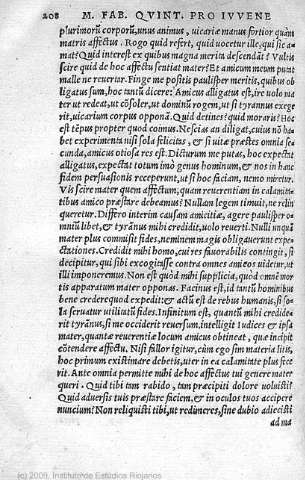 208 M. FAB. QVINT. PRO IVVENE
plurimorũ corporũ, unus animus, uicariæ manus fortior quàm
matris affectus. Rogo quid refert, quid uocetur ille, qui sic a-
mat? Quid interest ex quibus magna merita descendãt? Vultis
scire quid de hoc affectu sentiat mater? Et amicum meum putat
malle ne reuerear. Finge me positis paulisper meritis, quibus ob
ligatus sum, hoc tantũ dicere: Amicus alligatus est, ire uolo ma
ter ut redeat, ut cõsoler, ut dominũ rogem, ut si tyrannus exege
rit, uicarium corpus opponã. Quid detines? quid moraris? Hoc
est tẽpus propter quod coimus. Nescias an diligat, cuius nõ ha-
bet experimenta nisi sola felicitas, & si uitæ præstes omnia se
cunda, amicus otiosa res est. Dicturum me putas, hoc expectat
alligatus, expectat totum imò genus hominum, & nos in hanc
fidem persuasionis receperunt, ut si hoc faciam, nemo miretur.
Vis scire mater quem affectum, quam reuerentiam in calamita-
tibus amico præstare debeamus? Nullam legem timuit, ne relin
queretur. Differo interim causam amicitiæ, agere paulisper o-
mniũ libet, & tyrãnus mihi credidit, uolo reuerti. Nulli unquã
mater plus commisit fides, neminem magis obligauerunt expe-
ctationes. Credidit mihi homo, cui res fauorabilis contingit, si
decipitur, qui sibi excogitasse contra omnes amicos uidetur, ut
illi imponeremus. Non est quòd mihi supplicia, quòd omnẽ mor
tis apparatum mater opponas. Facinus est, id tantũ hominibus
bene crederequod expedit: & actũ est de rebus humanis, si so-
la seruatur utilitatũ fides. Infinitum est, quantũ mihi credide-
rit tyrãnus, si me occiderit reuersum, intelligit Iudices & ipsa
mater, quantæ reuerentiæ locum amicus obtineat, quæ incipit
cõtendere affectu. Nisi fallor igitur, cùm ego sim materia litis,
hoc primum existimare debetis, uter in ea calamitate plus fece
rit. Ante omnia permitte mihi de hoc affectus tui genere mater
queri. Quid tibi tam rabido, tam præcipiti dolore uoluisti?
Quid aduersis tuis præstare faciem, & in oculos tuos accipere
nuncium? Non reliquisti tibi, ut redimeres, sine dubio adiecisti
ad ma
(c) 2009, Instituto de Estudios Riojanos